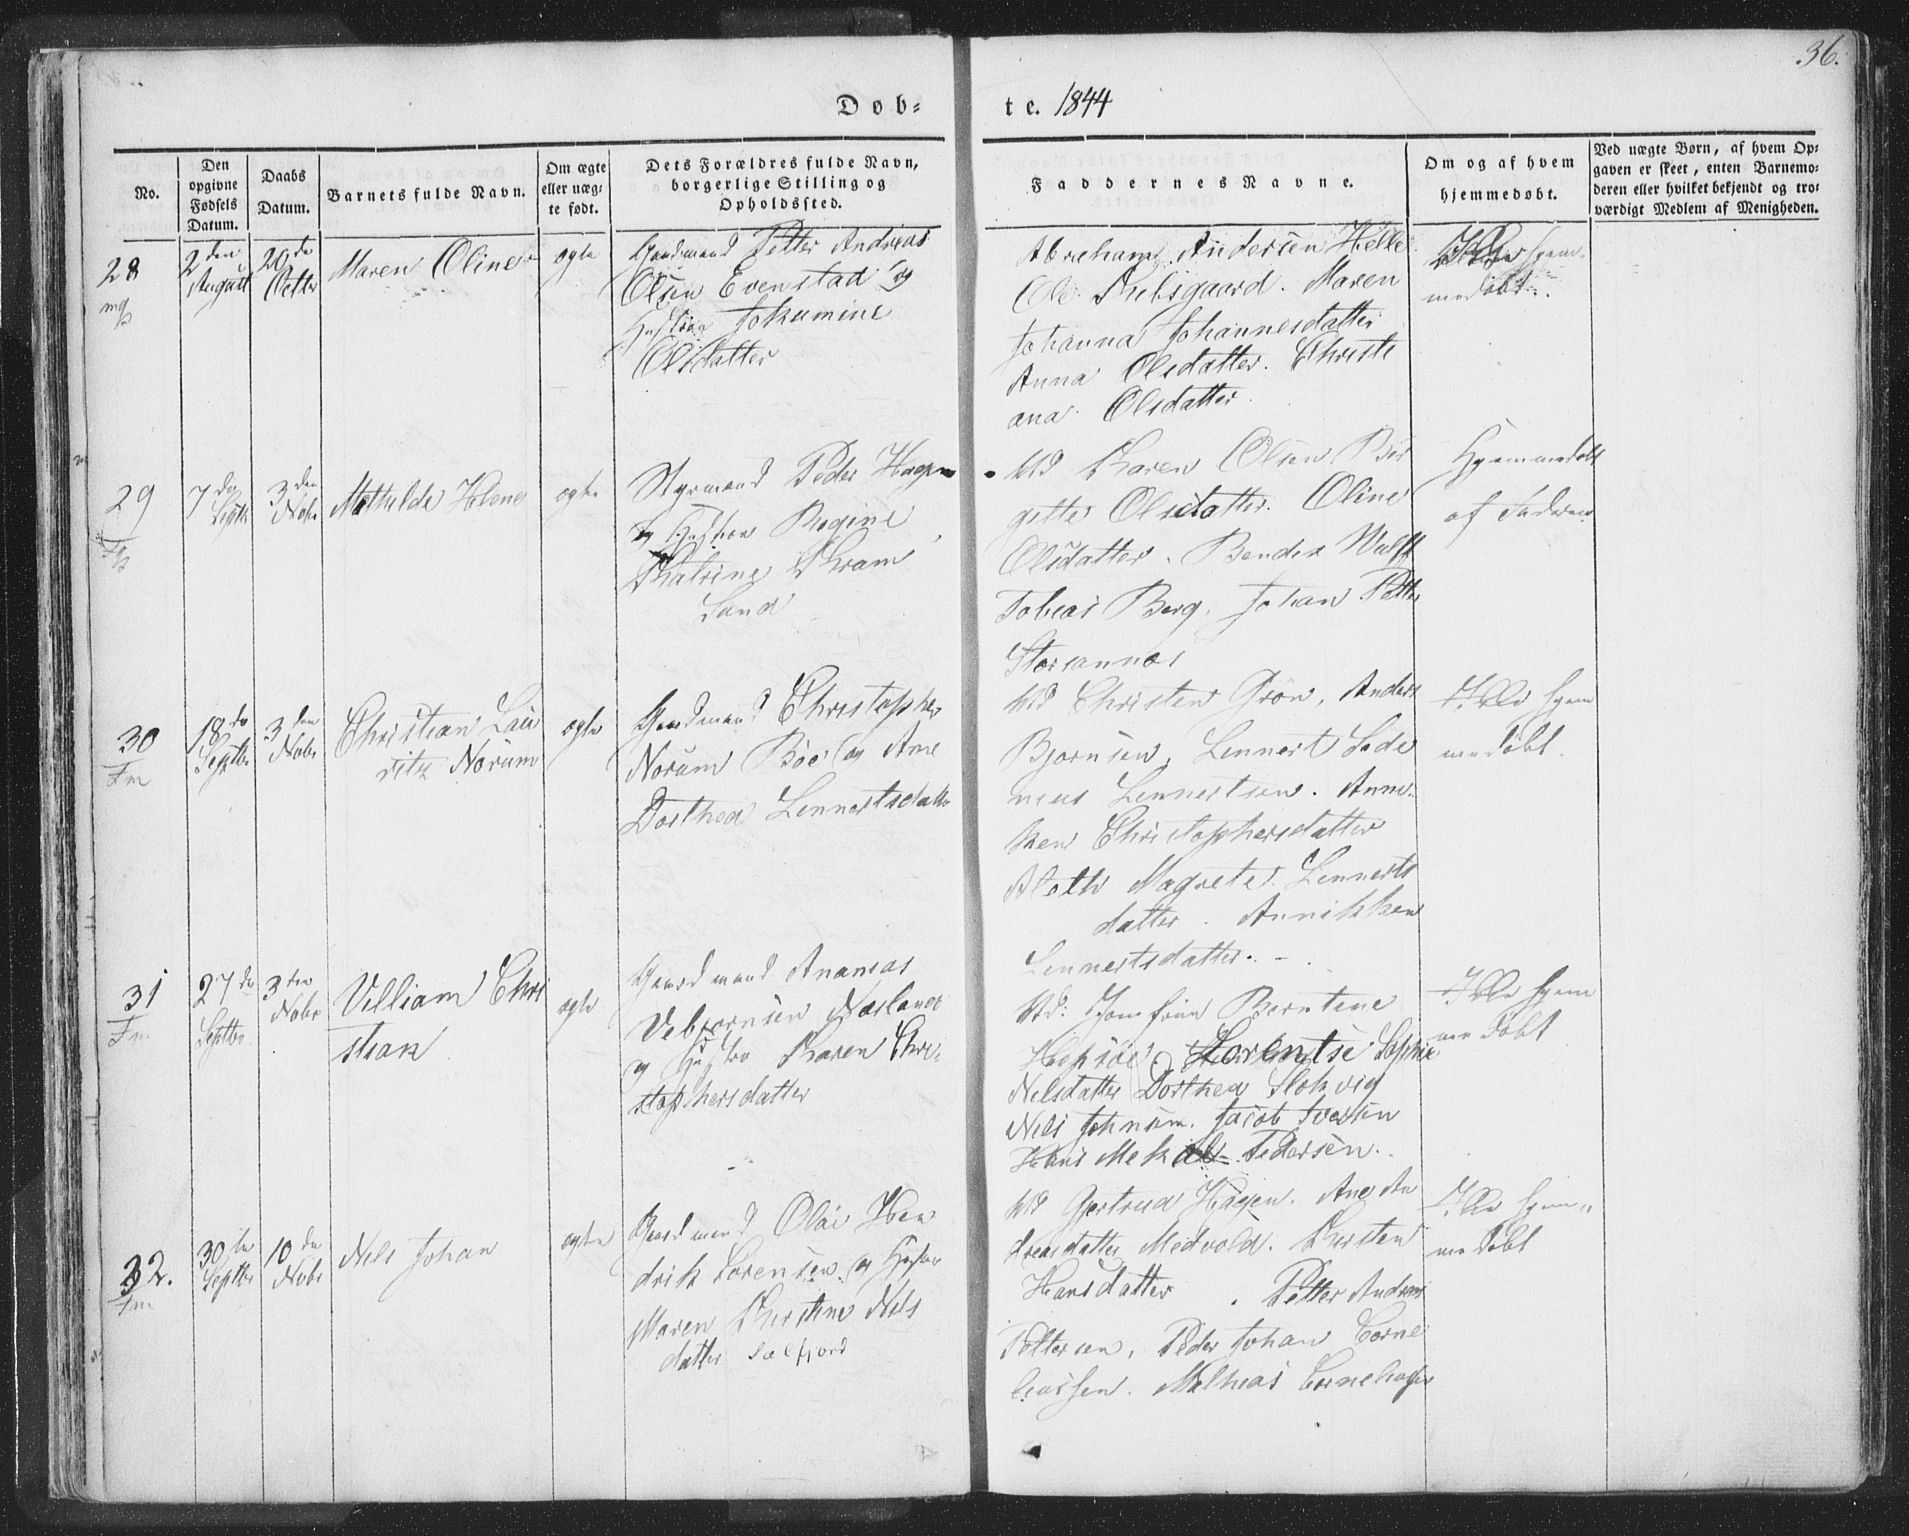 36.
Døb=
te. 1844
No.
Den opgivne Fødsels Datum.
Daabs Datum.
Barnets fulde Navn.
Om ægte eller uæg= te født.
Dets Forældres fulde Navn, borgerlige Stilling og Opholdssted.
Faddernes Navne.
Om og af hvem hjemmedøbt.
Ved uægte Børn, af hvem Op= gaven er skeet, enten Barnemo= deren eller hvilket bekjendt og tro= værdigt Medlem af Menigheden.
28
2den August
20de Octbr
Maren Oline
ægte
Gaardmand Petter Andreas
Olsen Evenstad og
Hustroe Jokumine
Olsdatter
Abraham Andersen Helle
Ole Riibsgaard. Maren
Johanna Johannesdatter
Anna Olsdatter. Christi
ana Olsdatter.
Ikke hjem=
medøbt.
29
7de Septbr
3den Nobr
Mathilde Helene
ægte
Styrmand Peder Hagen
og Hustroe Regine
Katrine Kram
Sand
Md Karen Olsen Bir
gitte Olsdatter. Oline
Olsdatter. Bendix Wulff
Tobias Berg. Johan Petter
Storsannes
Hjemmedøbt
af Faderen
30
Fm
18de Septbr
3den Nobr
Christian Lau
ritz Norum
ægte
Gaardmand Christopher
Norum Böe og Ane
Dorthea Lennertsdatter
Md Christen Grön, Anders
Bjørnsen, Lennert Sede
nius Lennertsen. Anne
ken Christophersdatter
Aleth Magrete Lennerts
datter. Annikken
Lennertsdatter. -
Ikke hjem
medøbt.
31
Fm
27de Septbr
3den Nobr
Villiam Chri
stian
ægte
Gaardmand Ananias
Vebjørnsen
og Hustro Karen Chri=
stophersdatter
Md: Jomfrue Berntine
Hopsöe, Lorentse Sophie
Nelsdatter Dorthea Slokvig
Nils Johnsen. Jacob Iversen
Hans Mekal Pedersen.
Ikke hjem
medøbt
32.
Fm
30te Septbr
10de Nobr
Nils Johan
ægte
Gaardmand Olai Hen
drik Sörensen og Hustro
Maren Kirstine Nils
datter Sælfjord
Md Gertrud Hagen. Ane An
dreasdatter Medvold. Kirsten
Hansdatter. Petter Andreas
Pettersen, Peder Johan Corne
liassen. Mathias Corneliassen
Ikke hjem=
medøbt